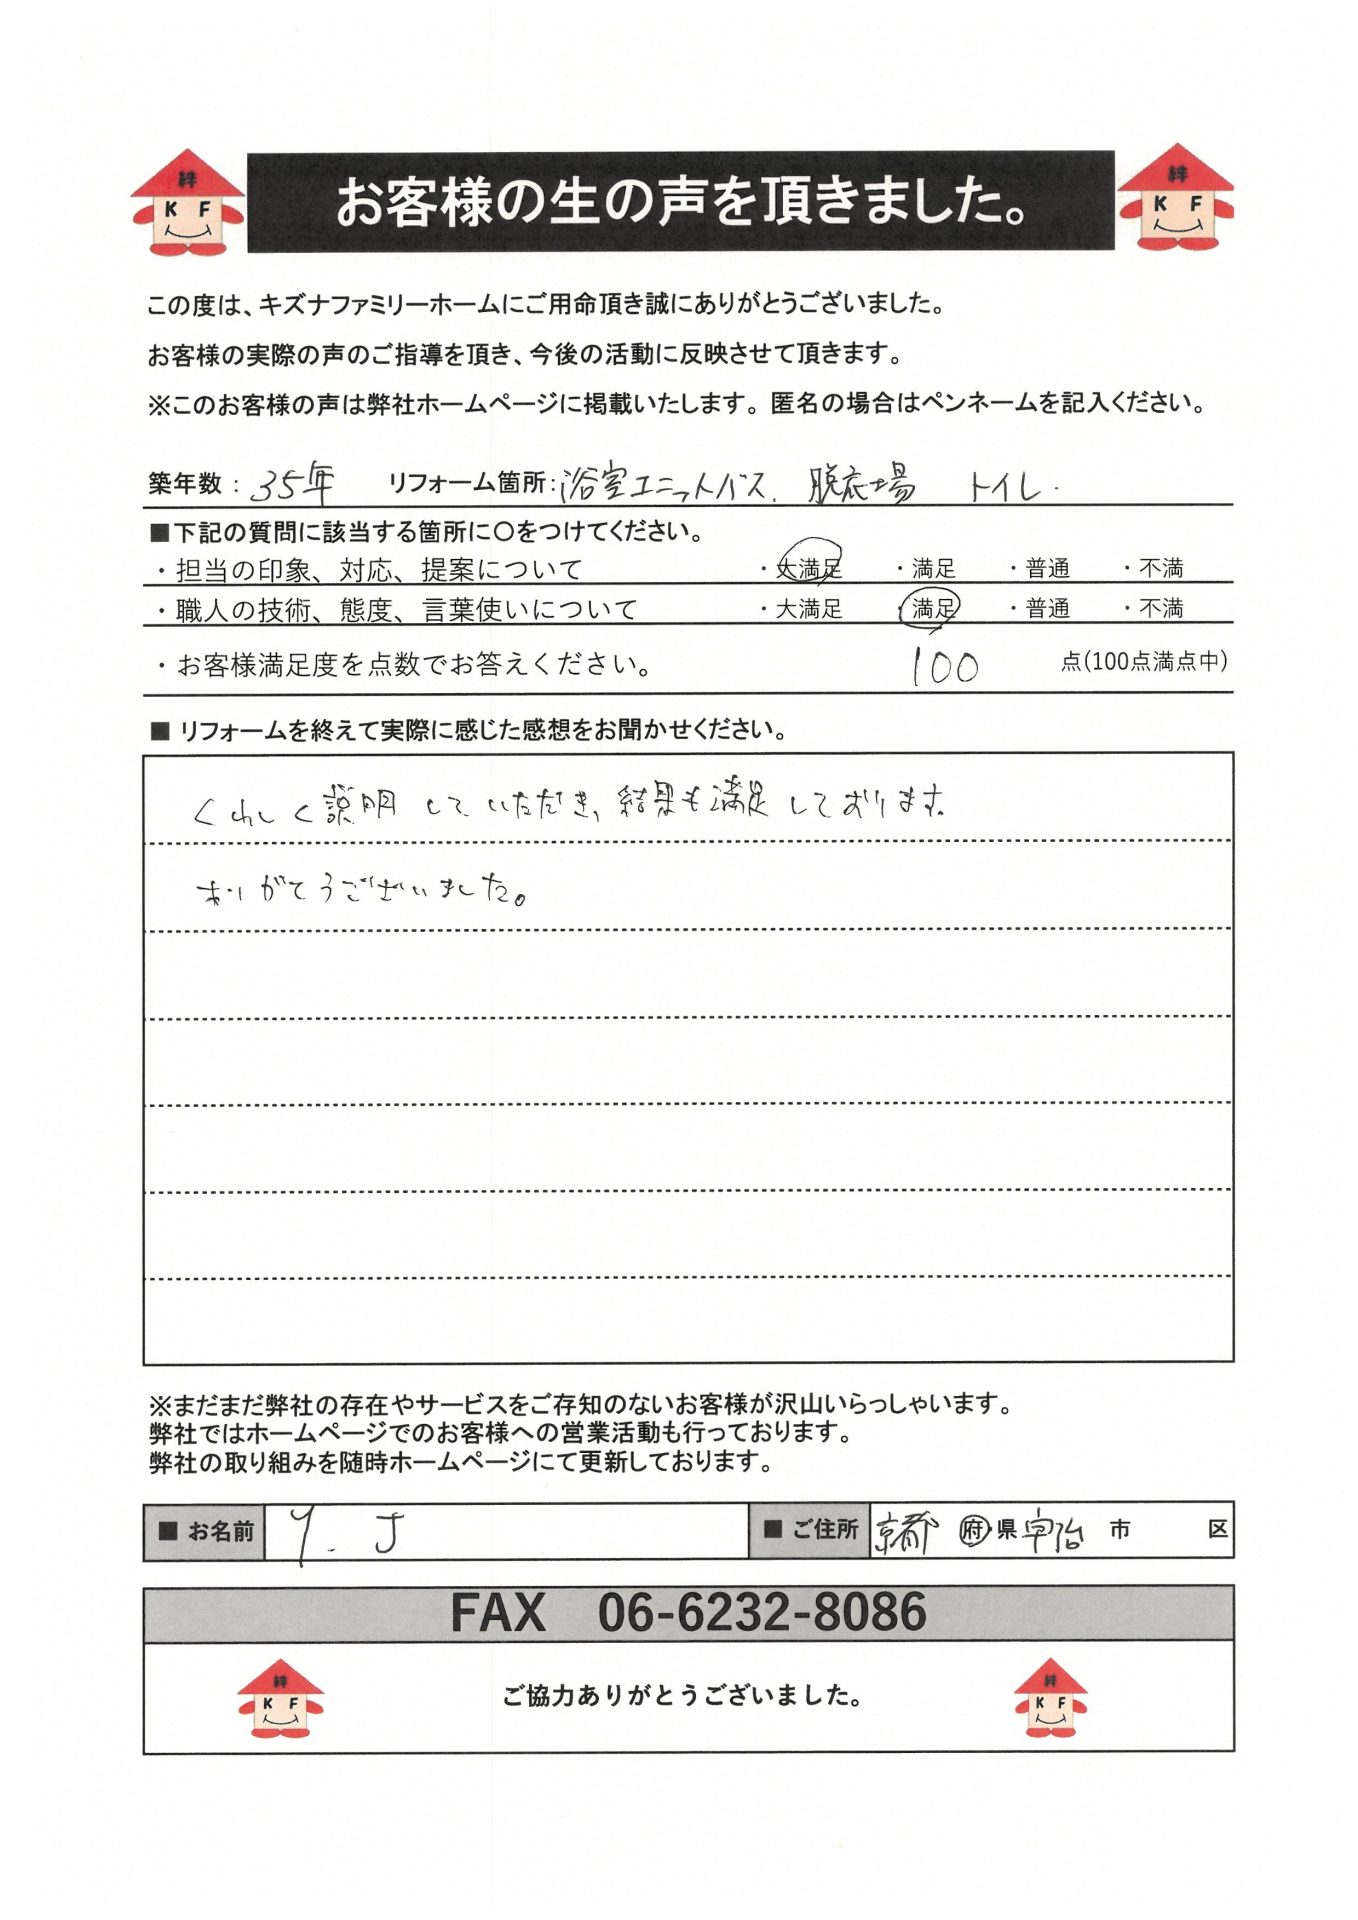 絆
KF
お客様の生の声を頂きました。
絆
KF
この度は、キズナファミリーホームにご用命頂き誠にありがとうございました。
お客様の実際の声のご指導を頂き、今後の活動に反映させて頂きます。
※このお客様の声は弊社ホームページに掲載いたします。匿名の場合はペンネームを記入ください。
築年数：35年 リフォーム箇所：浴室ユニットバス. 脱衣場 トイレ.
■下記の質問に該当する箇所に〇をつけてください。
・担当の印象、対応、提案について ・大満足 ・満足 ・普通 ・不満
・職人の技術、態度、言葉使いについて ・大満足 ・満足 ・普通 ・不満
・お客様満足度を点数でお答えください。 100 点(100点満点中)
■ リフォームを終えて実際に感じた感想をお聞かせください。
くわしく説明していただき、結果も満足しております。
ありがとうございました。
※まだまだ弊社の存在やサービスをご存知のないお客様が沢山いらっしゃいます。
弊社ではホームページでのお客様への営業活動も行っております。
弊社の取り組みを随時ホームページにて更新しております。
■ お名前 Y. J ■ ご住所 京都 府・県 宇治 市 区
FAX 06-6232-8086
絆
KF
ご協力ありがとうございました。
絆
KF